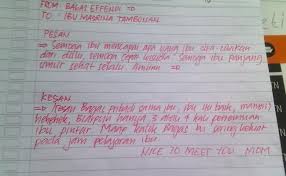 FROM: BAGAS EFFENDI =D
TO : IBU MADRINA TAMBUNAN
PESAN
=> Semoga ibu mencapai apa yang ibu cita-citakan
dari dulu, semoga cepat semoga ibu panjang
umur sehat selalu. Amiinn =D
KESAN
=> Kesan Bagas pribadi sama ibu, ibu itu baik, manis,
walaupun hanya 3 atau 4 kali pertemuan
ibu pintar. Maaf kalau Bagas itu sering
pada jam pelajaran ibu.
NICE TO MEET YOU MOM